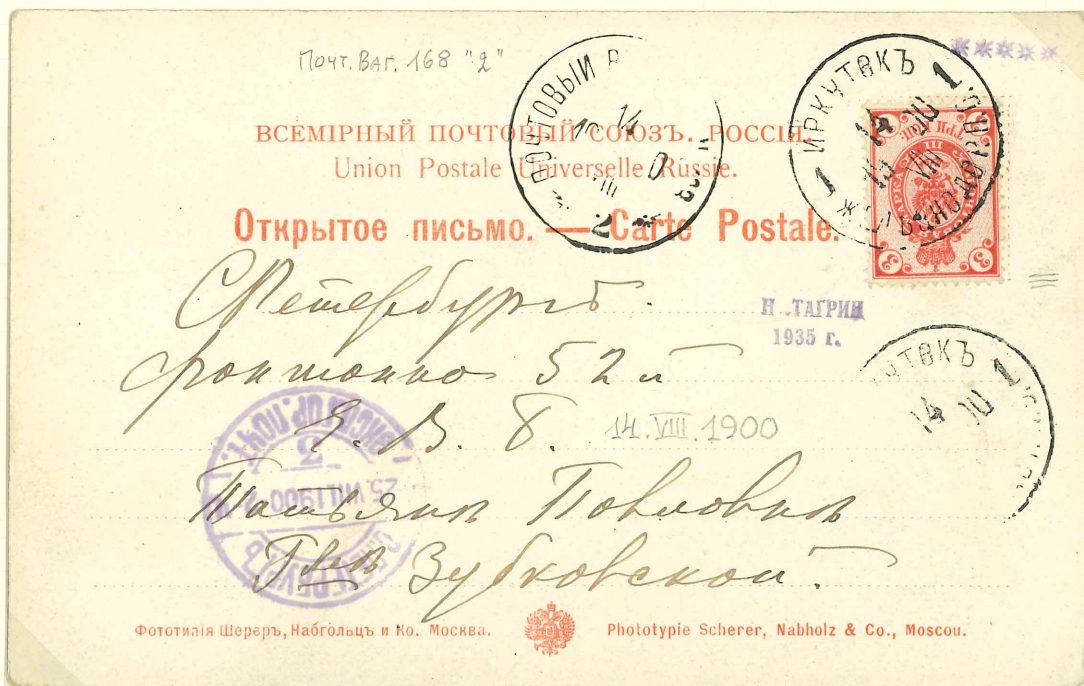 Почт. Ваг. 168 "2"
*****
ПОЧТОВЫЙ
14
2
1 ИРКУТСКЪ 1
14
15 VIII
ВСЕМІРНЫЙ ПОЧТОВЫЙ СОЮЗЪ. РОССІЯ.
Union Postale Universelle Russie.
Открытое письмо. — Carte Postale.
3 3
СПетербургъ.
Фонтанка 52
Н. ТАГРИН
1935 г.
Е. В. Б.
14.VIII.1900
Татьяне Павловне
Г-же Зубковской.
УТСКЪ 1
14
ГОР. ПОЧТ.
3
25.VIII.1900
С.ПЕТЕРБУРГЪ
Фототипія Шереръ, Набгольцъ и Ко. Москва.
Phototypie Scherer, Nabholz & Co., Moscou.